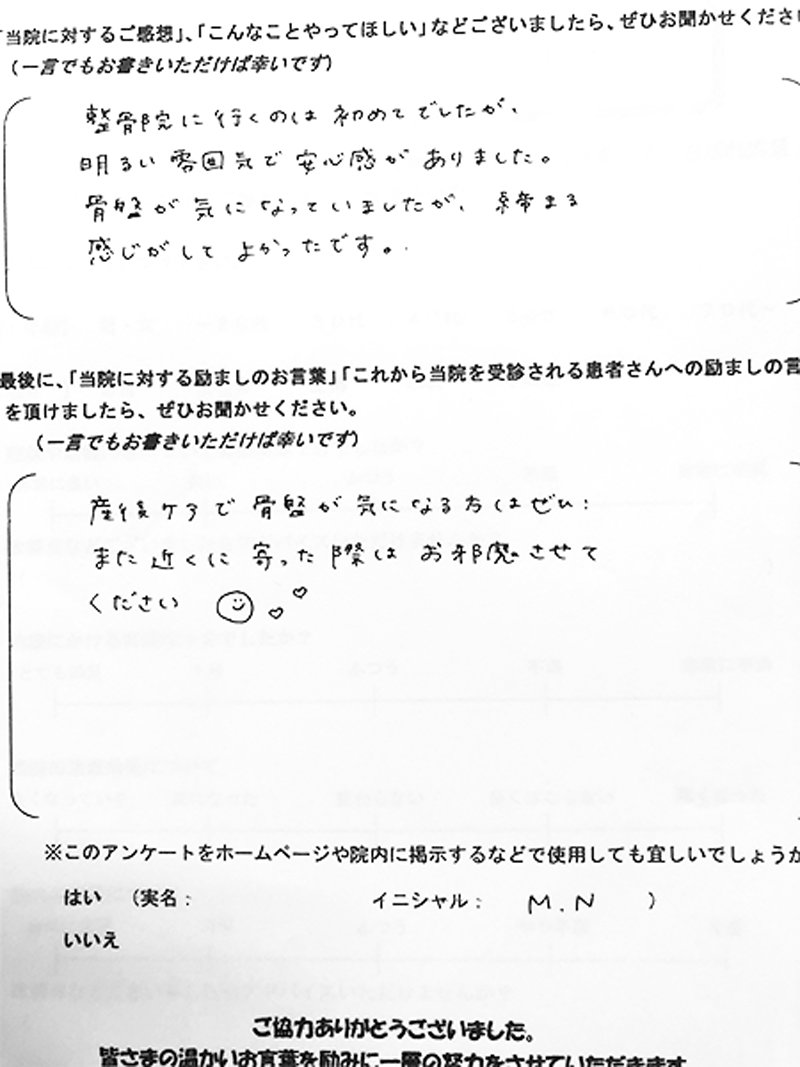 「当院に対するご感想」、「こんなことやってほしい」などございましたら、ぜひお聞かせくださ
（一言でもお書きいただけば幸いです）
整骨院に行くのは初めてでしたが、
明るい雰囲気で安心感がありました。
骨盤が気になっていましたが、締まる
感じがしてよかったです。
最後に、「当院に対する励ましのお言葉」「これから当院を受診される患者さんへの励ましの言
を頂けましたら、ぜひお聞かせください。
（一言でもお書きいただけば幸いです）
産後ケアで骨盤が気になる方はぜひ！
また近くに寄った際はお邪魔させて
ください
※このアンケートをホームページや院内に掲示するなどで使用しても宜しいでしょうか
はい （実名： イニシャル： M.N ）
いいえ
ご協力ありがとうございました。
皆さまの温かいお言葉を励みに一層の努力をさせていただきます